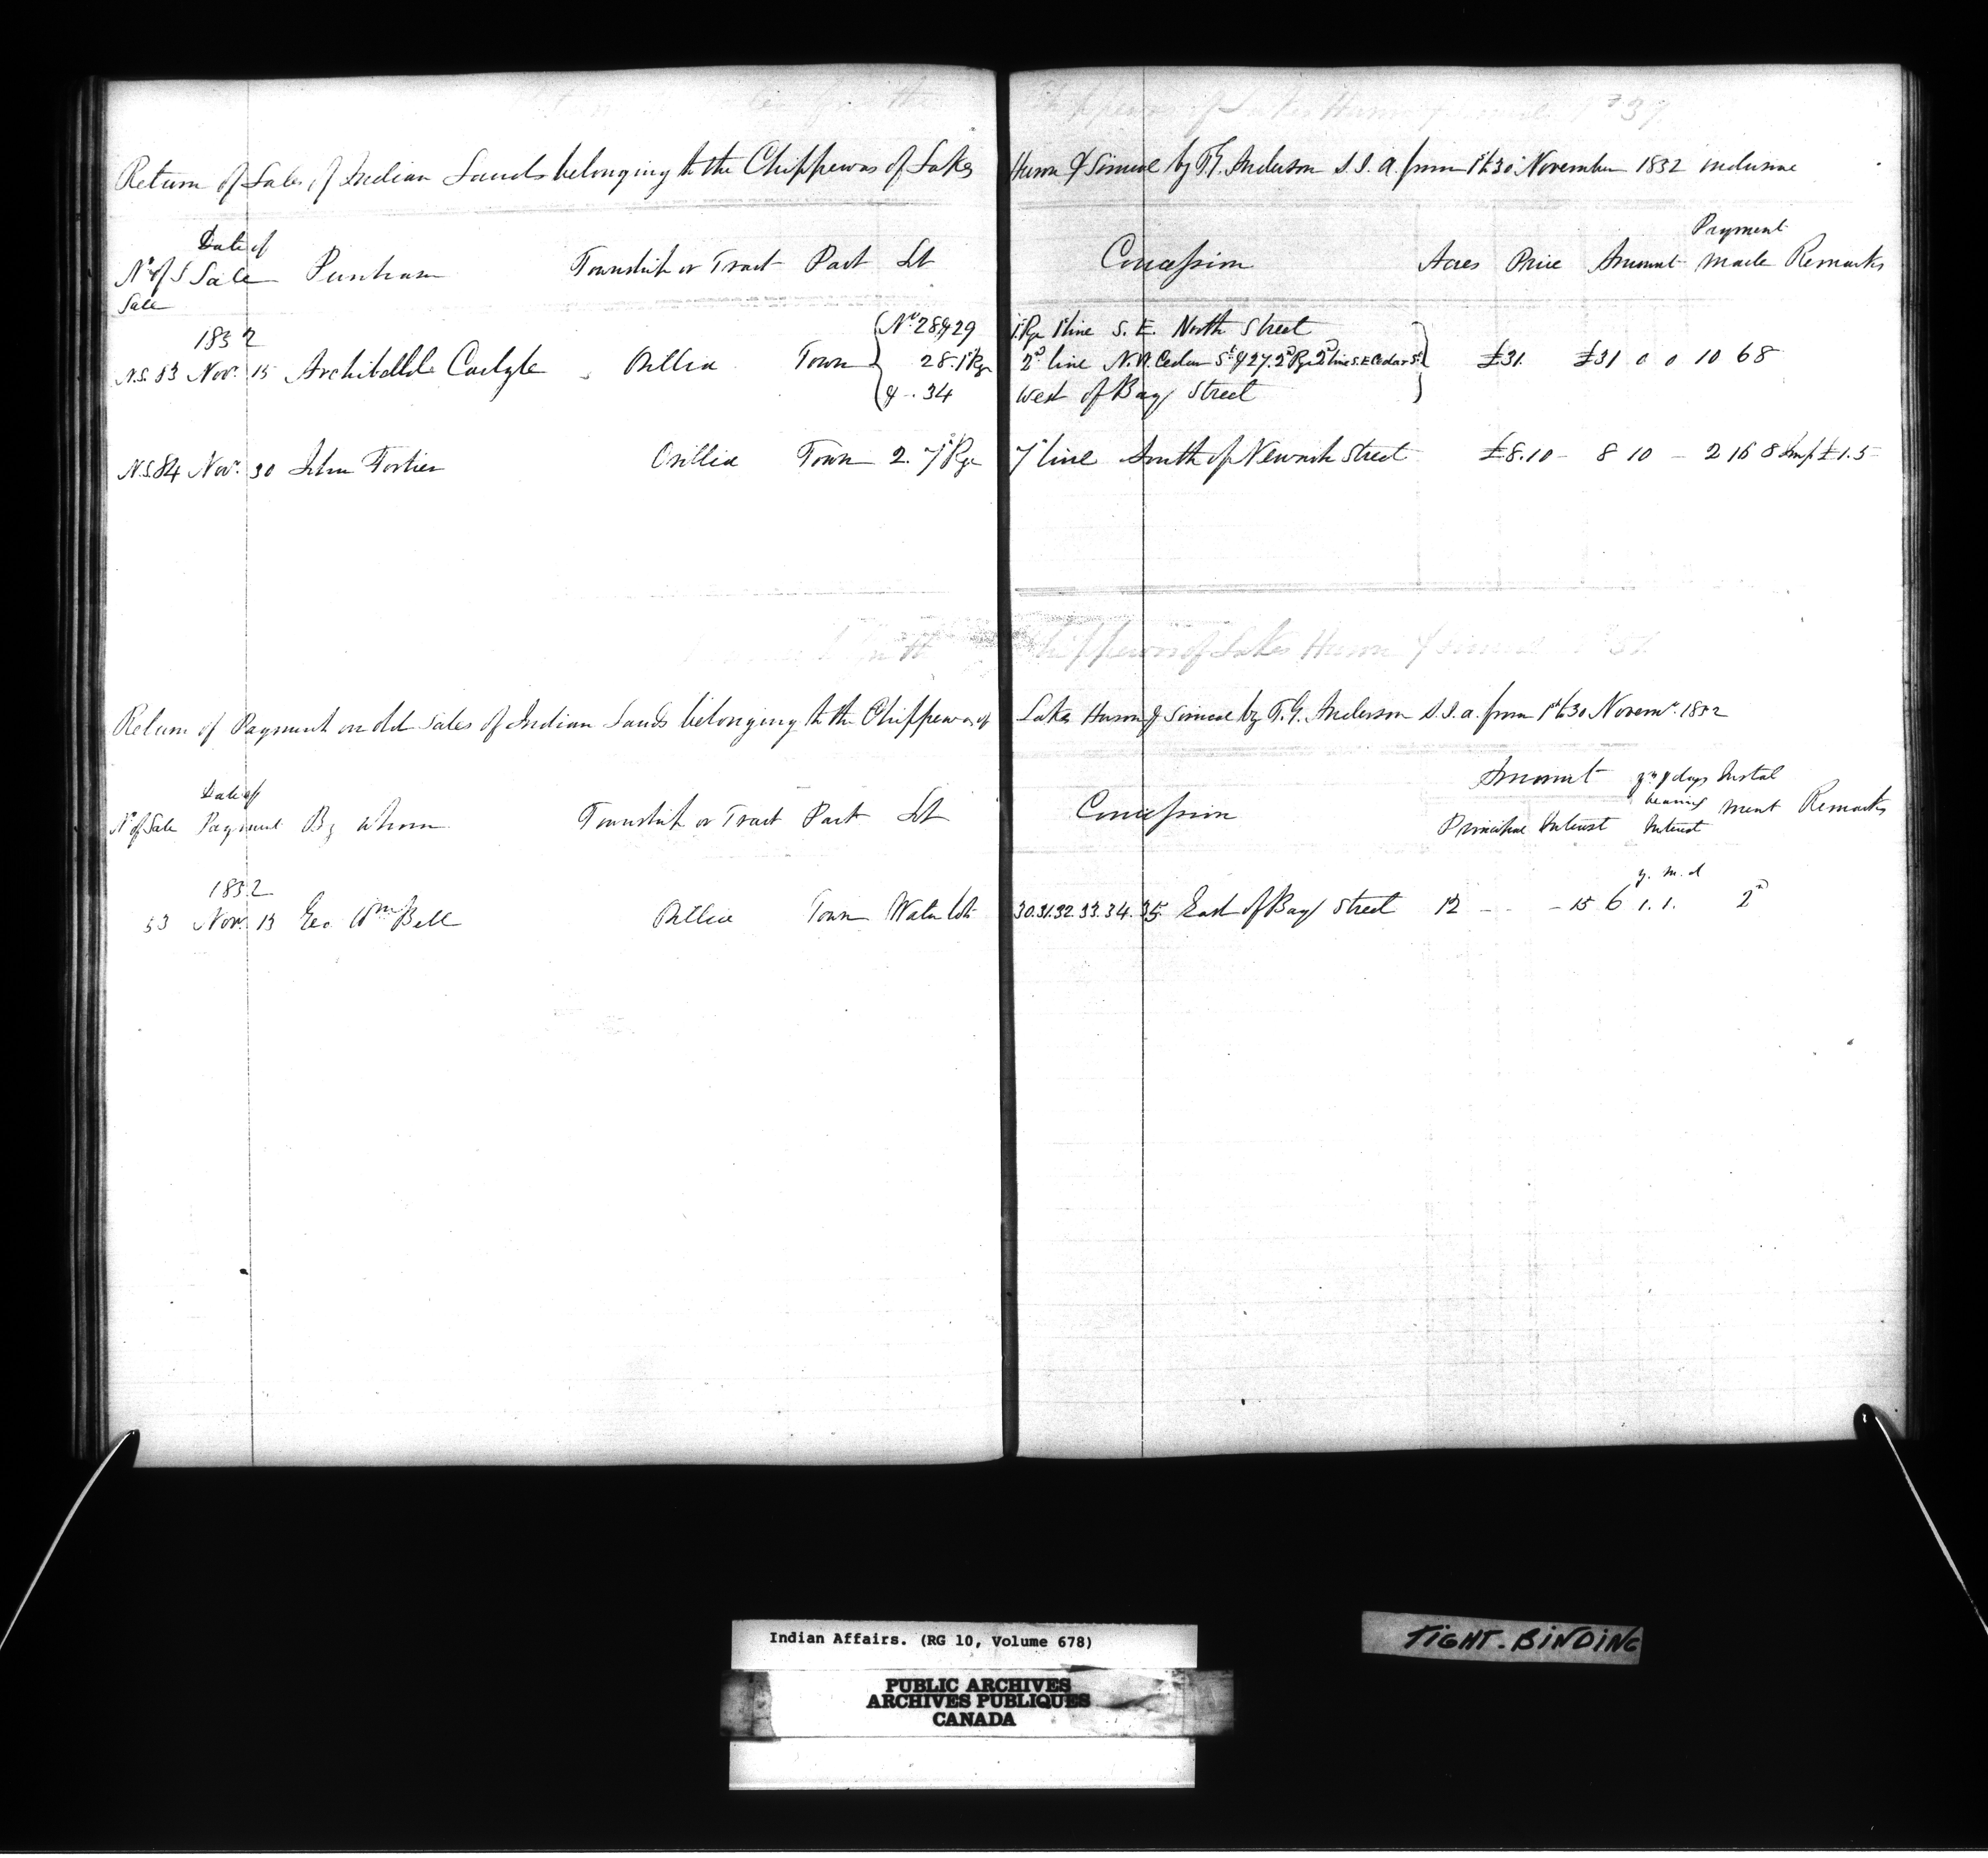 Return of Sales of Indian Lands belonging to the Chippewas of Lakes Huron & Simcoe by T.G. Anderson S.I.A. from 1st to 30 November 1832 inclusive
No of Sale Date of Sale Purchaser Township or Tract Part Lot Concession Acres Price Amount Payment made Remarks
1832 { No 28 & 29 1st Rge 1st line S.E. North Street }
N.S. 83 Nov. 15 Archibald Carlyle Orillia Town 28. 1st Rge 2d line N.W. Cedar St & 27. 2d Rge 2d line S.E. Cedar St £31. £31 0 0 10 6 8
& . 34 West of Bay Street
N.S. 84 Nov. 30 John Fortier Orillia Town 2. 1st Rge 1st line South of Newark Street £8.10 - 8 10 - 2 16 8 Imp. £1.5
Return of Payment on old Sales of Indian Lands belonging to the Chippewas of Lakes Huron & Simcoe by T.G. Anderson S.I.A. from 1st to 30 Novemr. 1832
No of Sale Date of Payment By Whom Township or Tract Part Lot Concession Amount Principal Interest days bearing Interest Instalment Remarks
1832 y. m. d
53 Nov. 13 Geo. Wm Bell Orillia Town Water lots 30.31.32.33.34.35. East of Bay Street 12 - - - 15 6 1. 1. 2d
Indian Affairs. (RG 10, Volume 678)
PUBLIC ARCHIVES
ARCHIVES PUBLIQUES
CANADA
TIGHT-BINDING